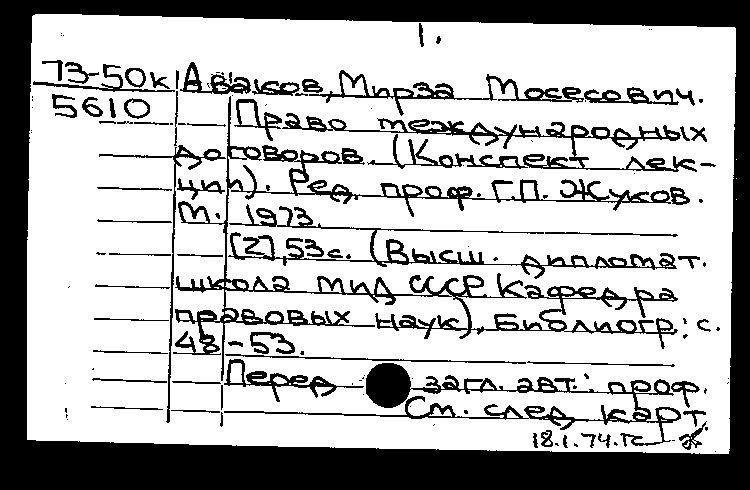 1.
73-50к Аваков, Мирза Мосесович.
5610 Право международных
договоров. (Конспект лек-
ции). Ред. проф. Г.П. Жуков.
М. 1973.
[2], 53с. (Высш. дипломат.
школа МИД СССР. Кафедра
правовых наук). Библиогр: с.
48-53.
Перед загл. авт.: проф.
См. след карт
18.1.74.